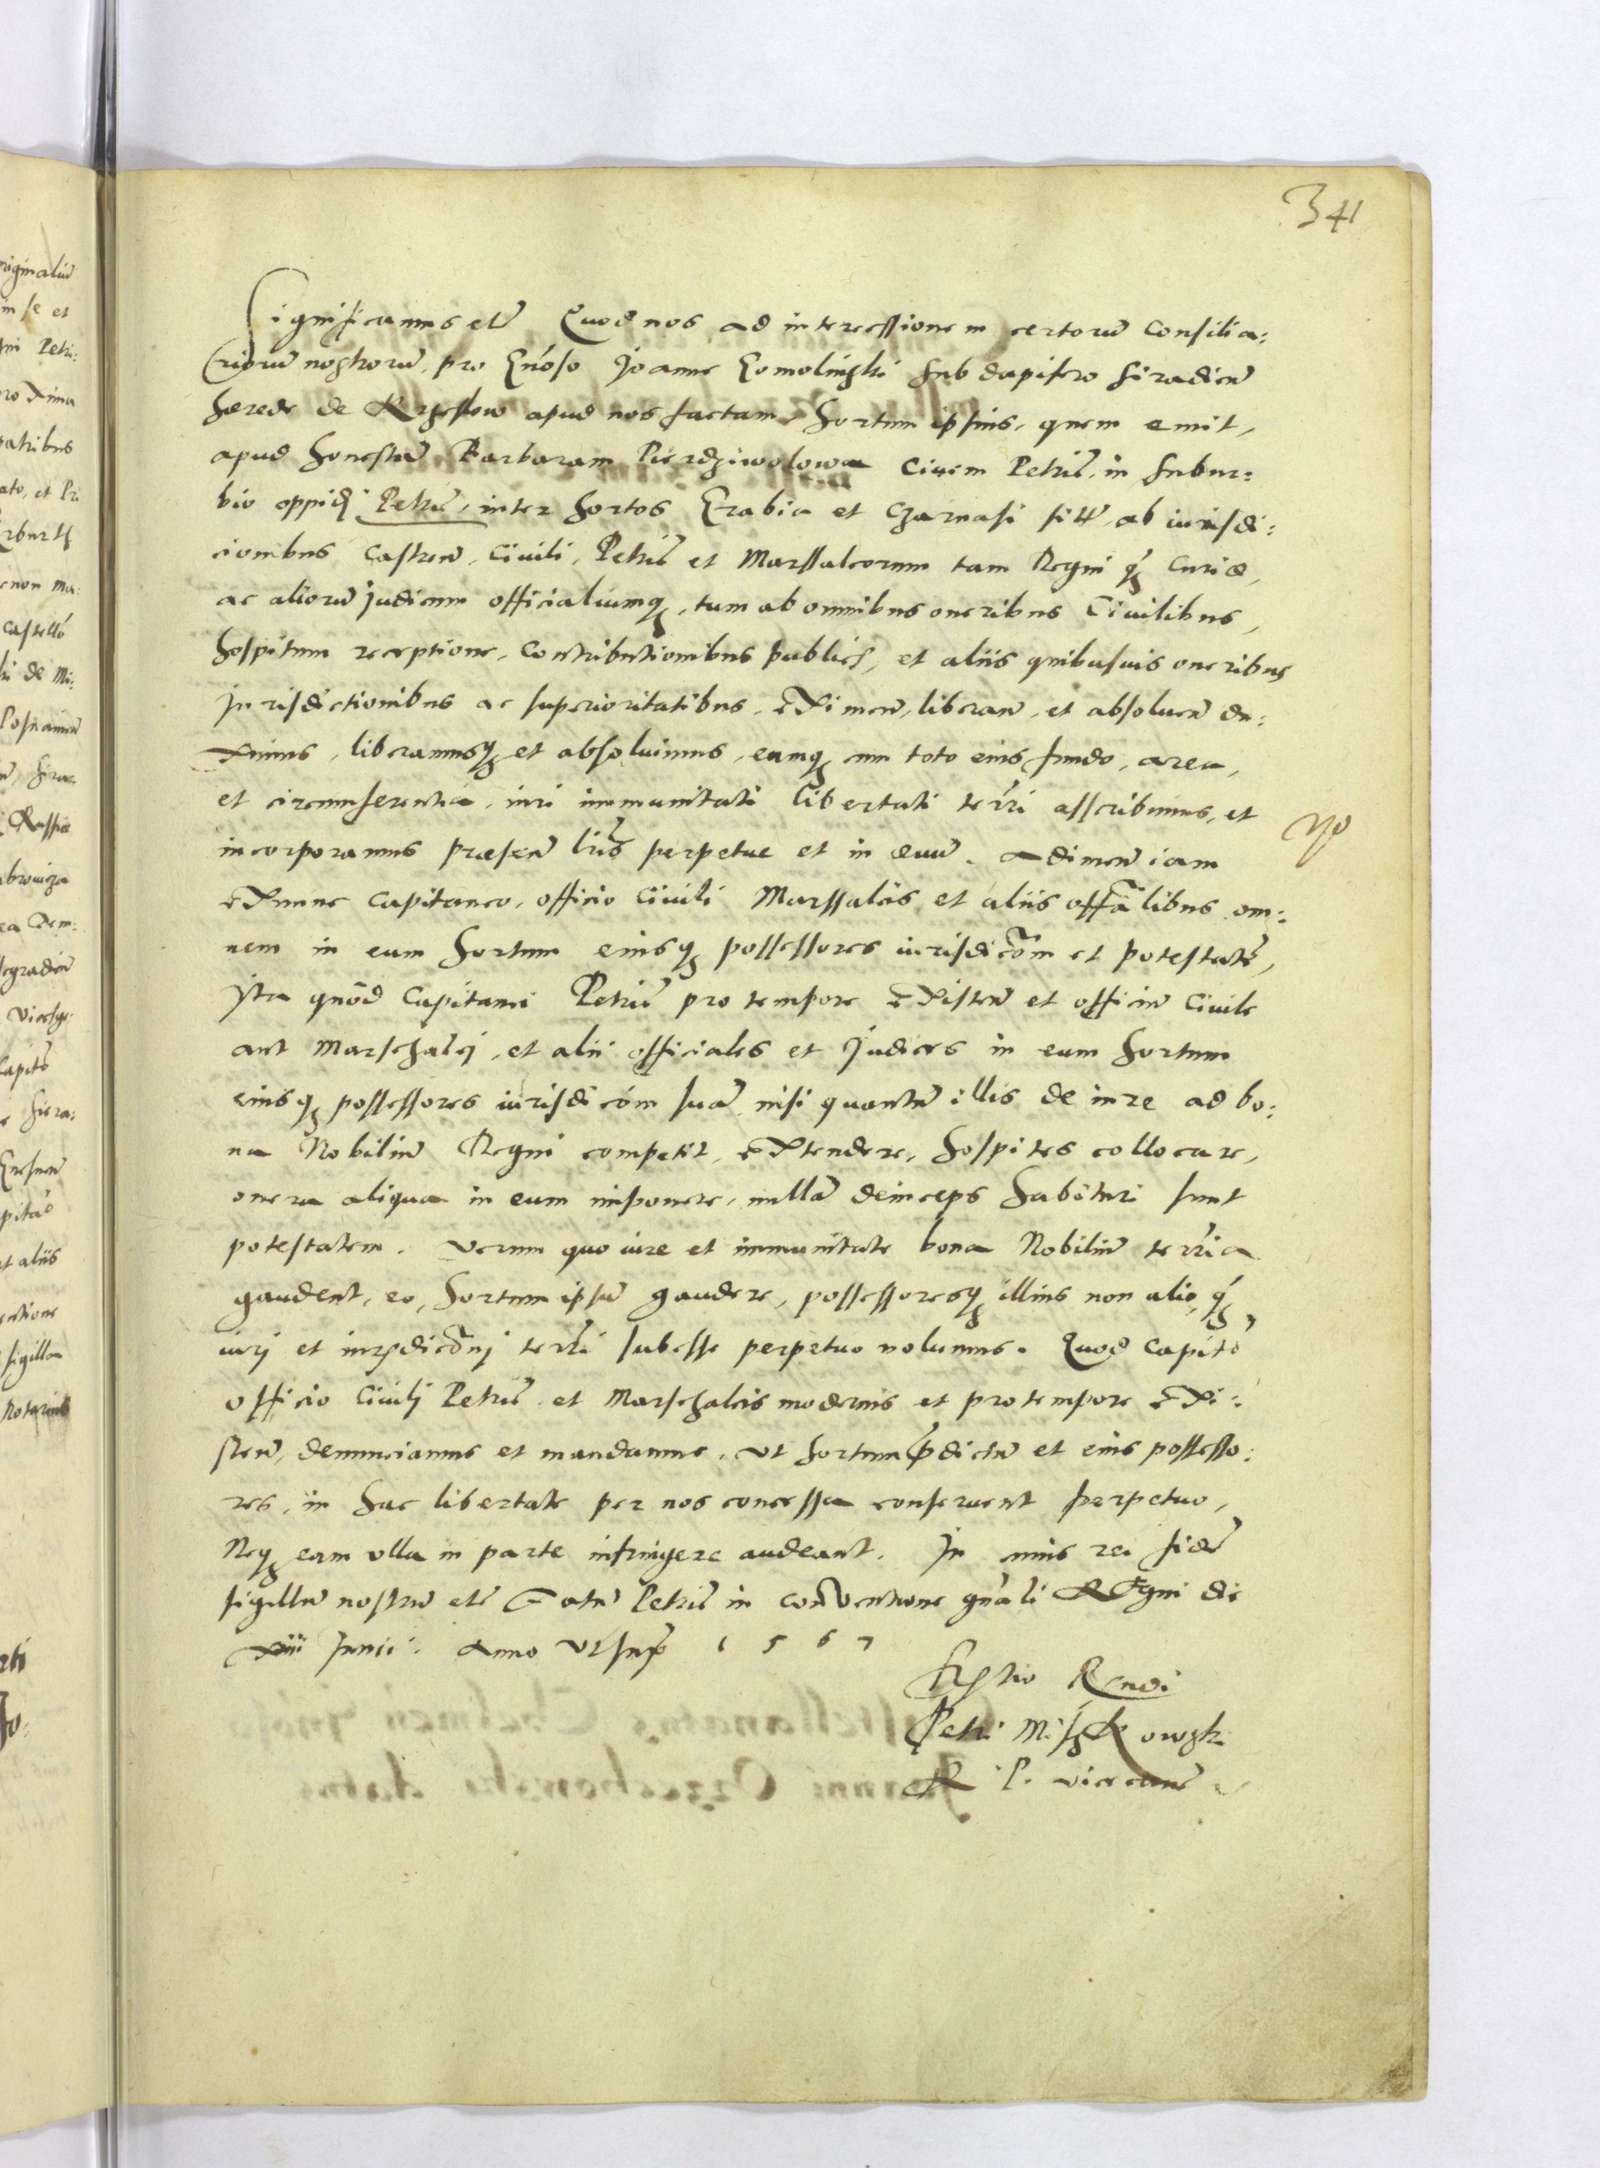 341
Significamus etc̄ Quod nos ad intercessionem certorū Consilia:
riorū nostrorū, pro Gn̄oso Joanne Gomolinski Subdapifero Siradien̄
hærede de Krzeslow apud nos factam, hortum ipsius, quem emit,
apud honestā Barbaram Pierdziwolowa Ciuem Petric̄, in subur:
bio oppidi Petric̄, inter hortos Grabia et Czarnasi sitū, ab iurisdi:
cionibus Castren̄, Ciuili, Petric̄ et Marssalcorum tam Regni q̄ꝫ Curiæ,
ac aliorū Judicum officialiumqꝫ, tum ab omnibus oneribus Ciuilibus,
hospitum receptione, Contributionibus publicis, et aliis quibusuis oneribus
Jurisdictionibus ac superioritatibus, eximen̄, liberan̄, et absoluen̄ du:
ximus, liberamusqꝫ et absoluimus, eumqꝫ cum toto eius fundo, area,
et circumferentia, iuri immunitati libertati terr̄i asscribimus, et
incorporamus præsen̄ lr̄is perpetue et in æuū. Adimen̄ iam
extunc Capitaneo, officio Ciuili Marssalcis et aliis offāli​bus om:
nem in eum hortum eiusqꝫ possessores iurisdicōm et potestatē,
Ita quōd Capitanei Petric̄ pro tempore existen̄ et officiū Ciuile
aut Marschalci, et alii officiales et Judices in eum hortum
eiusqꝫ possessores iurisdicōm suā, nisi quantū illis de iure ad bo:
na Nobiliū Regni competit, extendere, hospites collocare,
onera aliqua in eum imponere, nullā deinceps habituri sunt
potestatem. Verum quo iure et immunitate bona Nobiliū terr̄ia
gaudent, eo, hortum ipsū gaudere, possessoresqꝫ illius non alio, q̄ꝫ
iurj et iurisdicōnj terr̄i subesse perpetuo volumus. Quod Capit̄o
officio Ciuilj Petric̄ et Marschalcis modernis et pro tempore exi:
sten̄, denunciamus et mandamus, vt hortum p̄dictū et eius possesso:
res, in hac libertate per nos concessa conseruent perpetuo,
Neqꝫ eam vlla in parte infringere audeant. In cuius rei fidē
sigillū nostrū etc̄ Datū Petric̄ in conventione gn̄ali Regni die
xiii Junii. Anno vt sup̄ 1567
Relatio Rendi
Petri Miszkowski
R. P. vicecanc̄